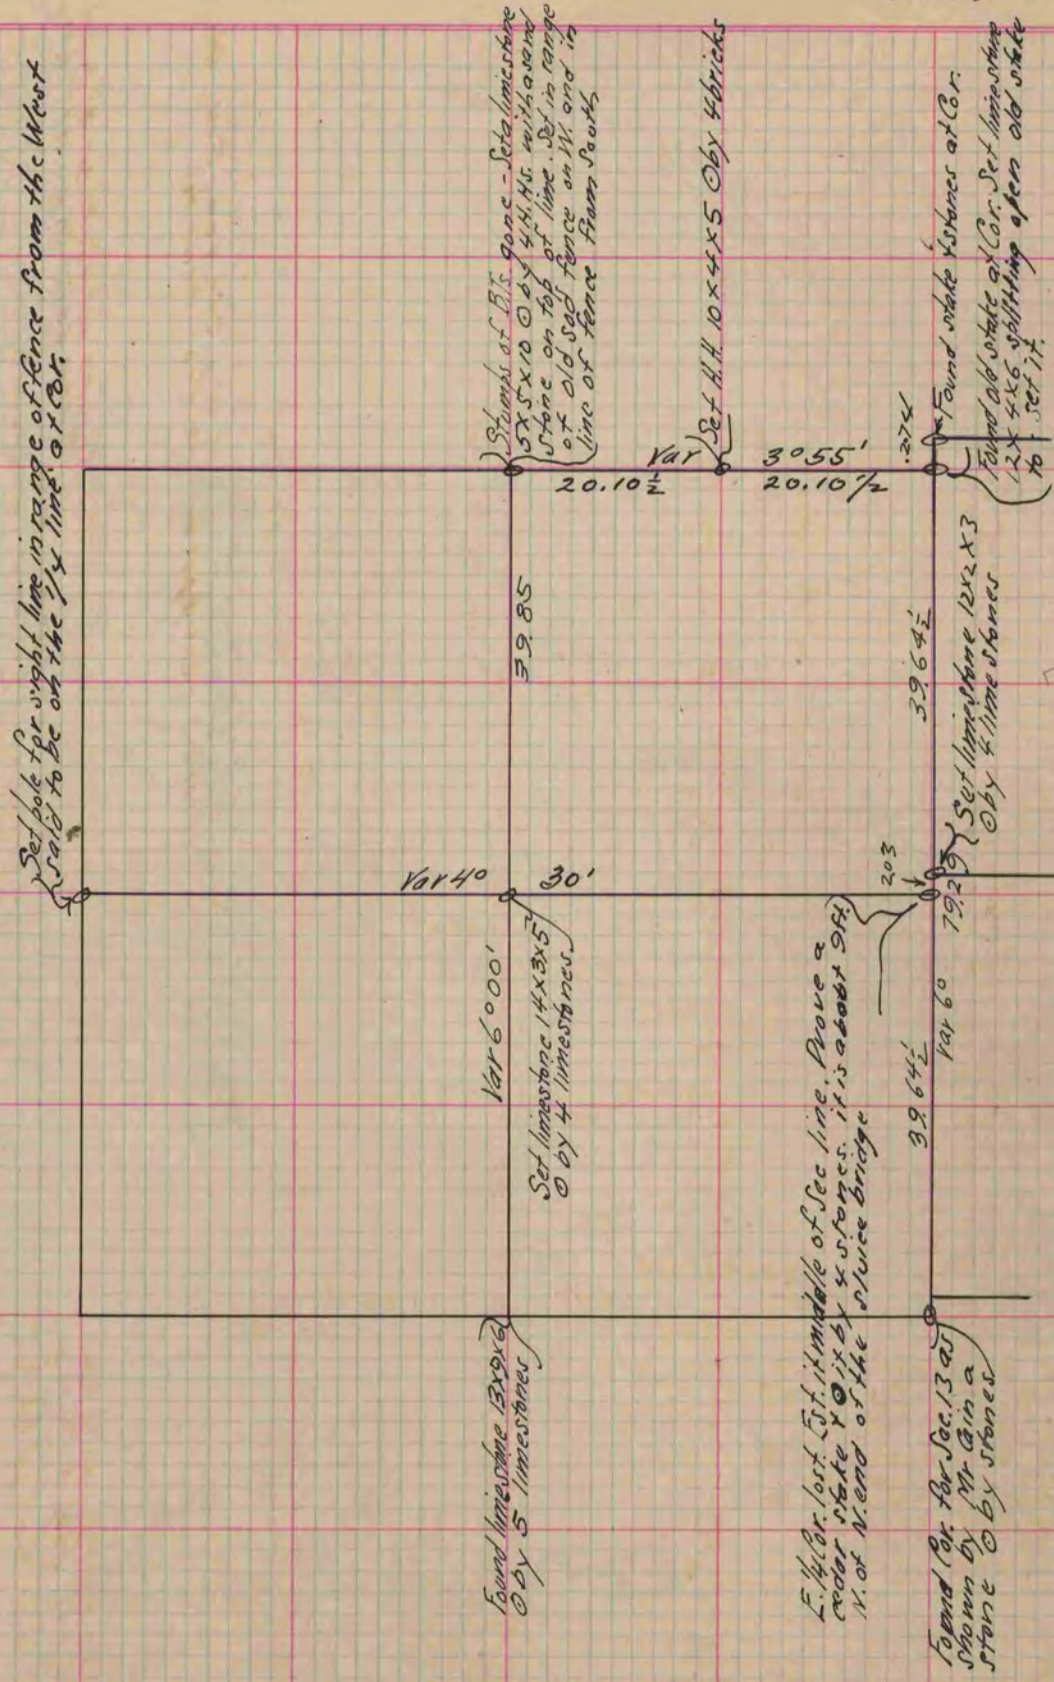 Set pole for sight line in range of fence from the West
said to be on the 1/4 line at Cor.
Stumps of B.Ts. gone - Set a limestone
5x5x10 ⊙ by 4 H.Hs. with a sand
stone on top of lime. Set in range
of old sod fence on W. and in
line of fence from South
Set H.H. 10x4x5 ⊙ by 4 bricks
Found stake & stones at Cor.
Found old stake at Cor. Set limestone
12x4x6 splitting open old stake
to set it.
Var 3°55'
20.10½
20.10½
.274
39.85
39.64½
Set limestone 12x2x3
⊙ by 4 lime stones
Var 4° 30'
203
79.29
Var 6°00'
Set limestone 14x3x5
⊙ by 4 limestones.
E. 1/4 Cor. lost. Est. it middle of Sec line. Drove a
cedar stake & ⊙ it by 4 stones. it is about 9ft.
N. of N. end of the sluice bridge
39.64½
Var 6°
Found limestone 13x9x6
⊙ by 5 limestones
Found Cor. for Sec. 13 as
shown by Mr Cain a
stone ⊙ by stones